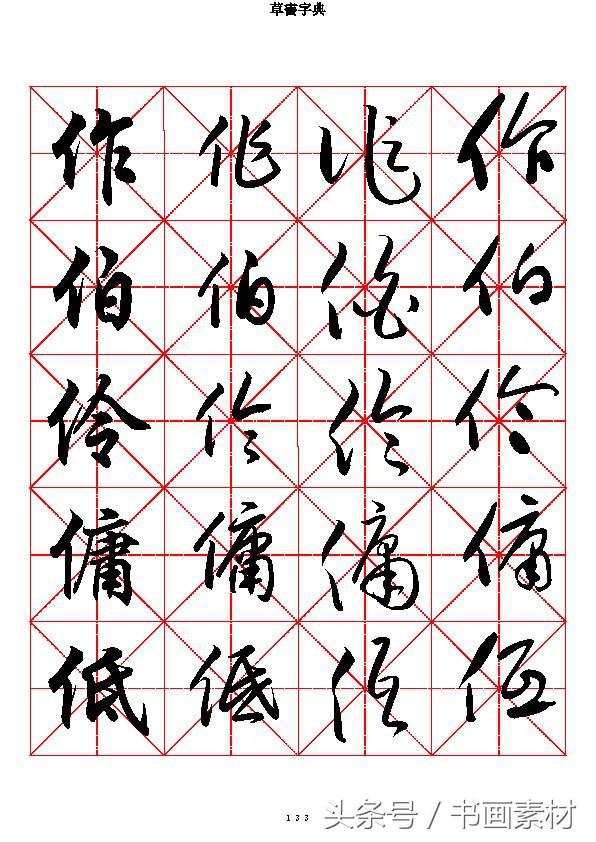 草書字典
作 作 作 作
伯 伯 伯 伯
伶 伶 伶 伶
傭 傭 傭 傭
低 低 低 低
133
头条号 / 书画素材